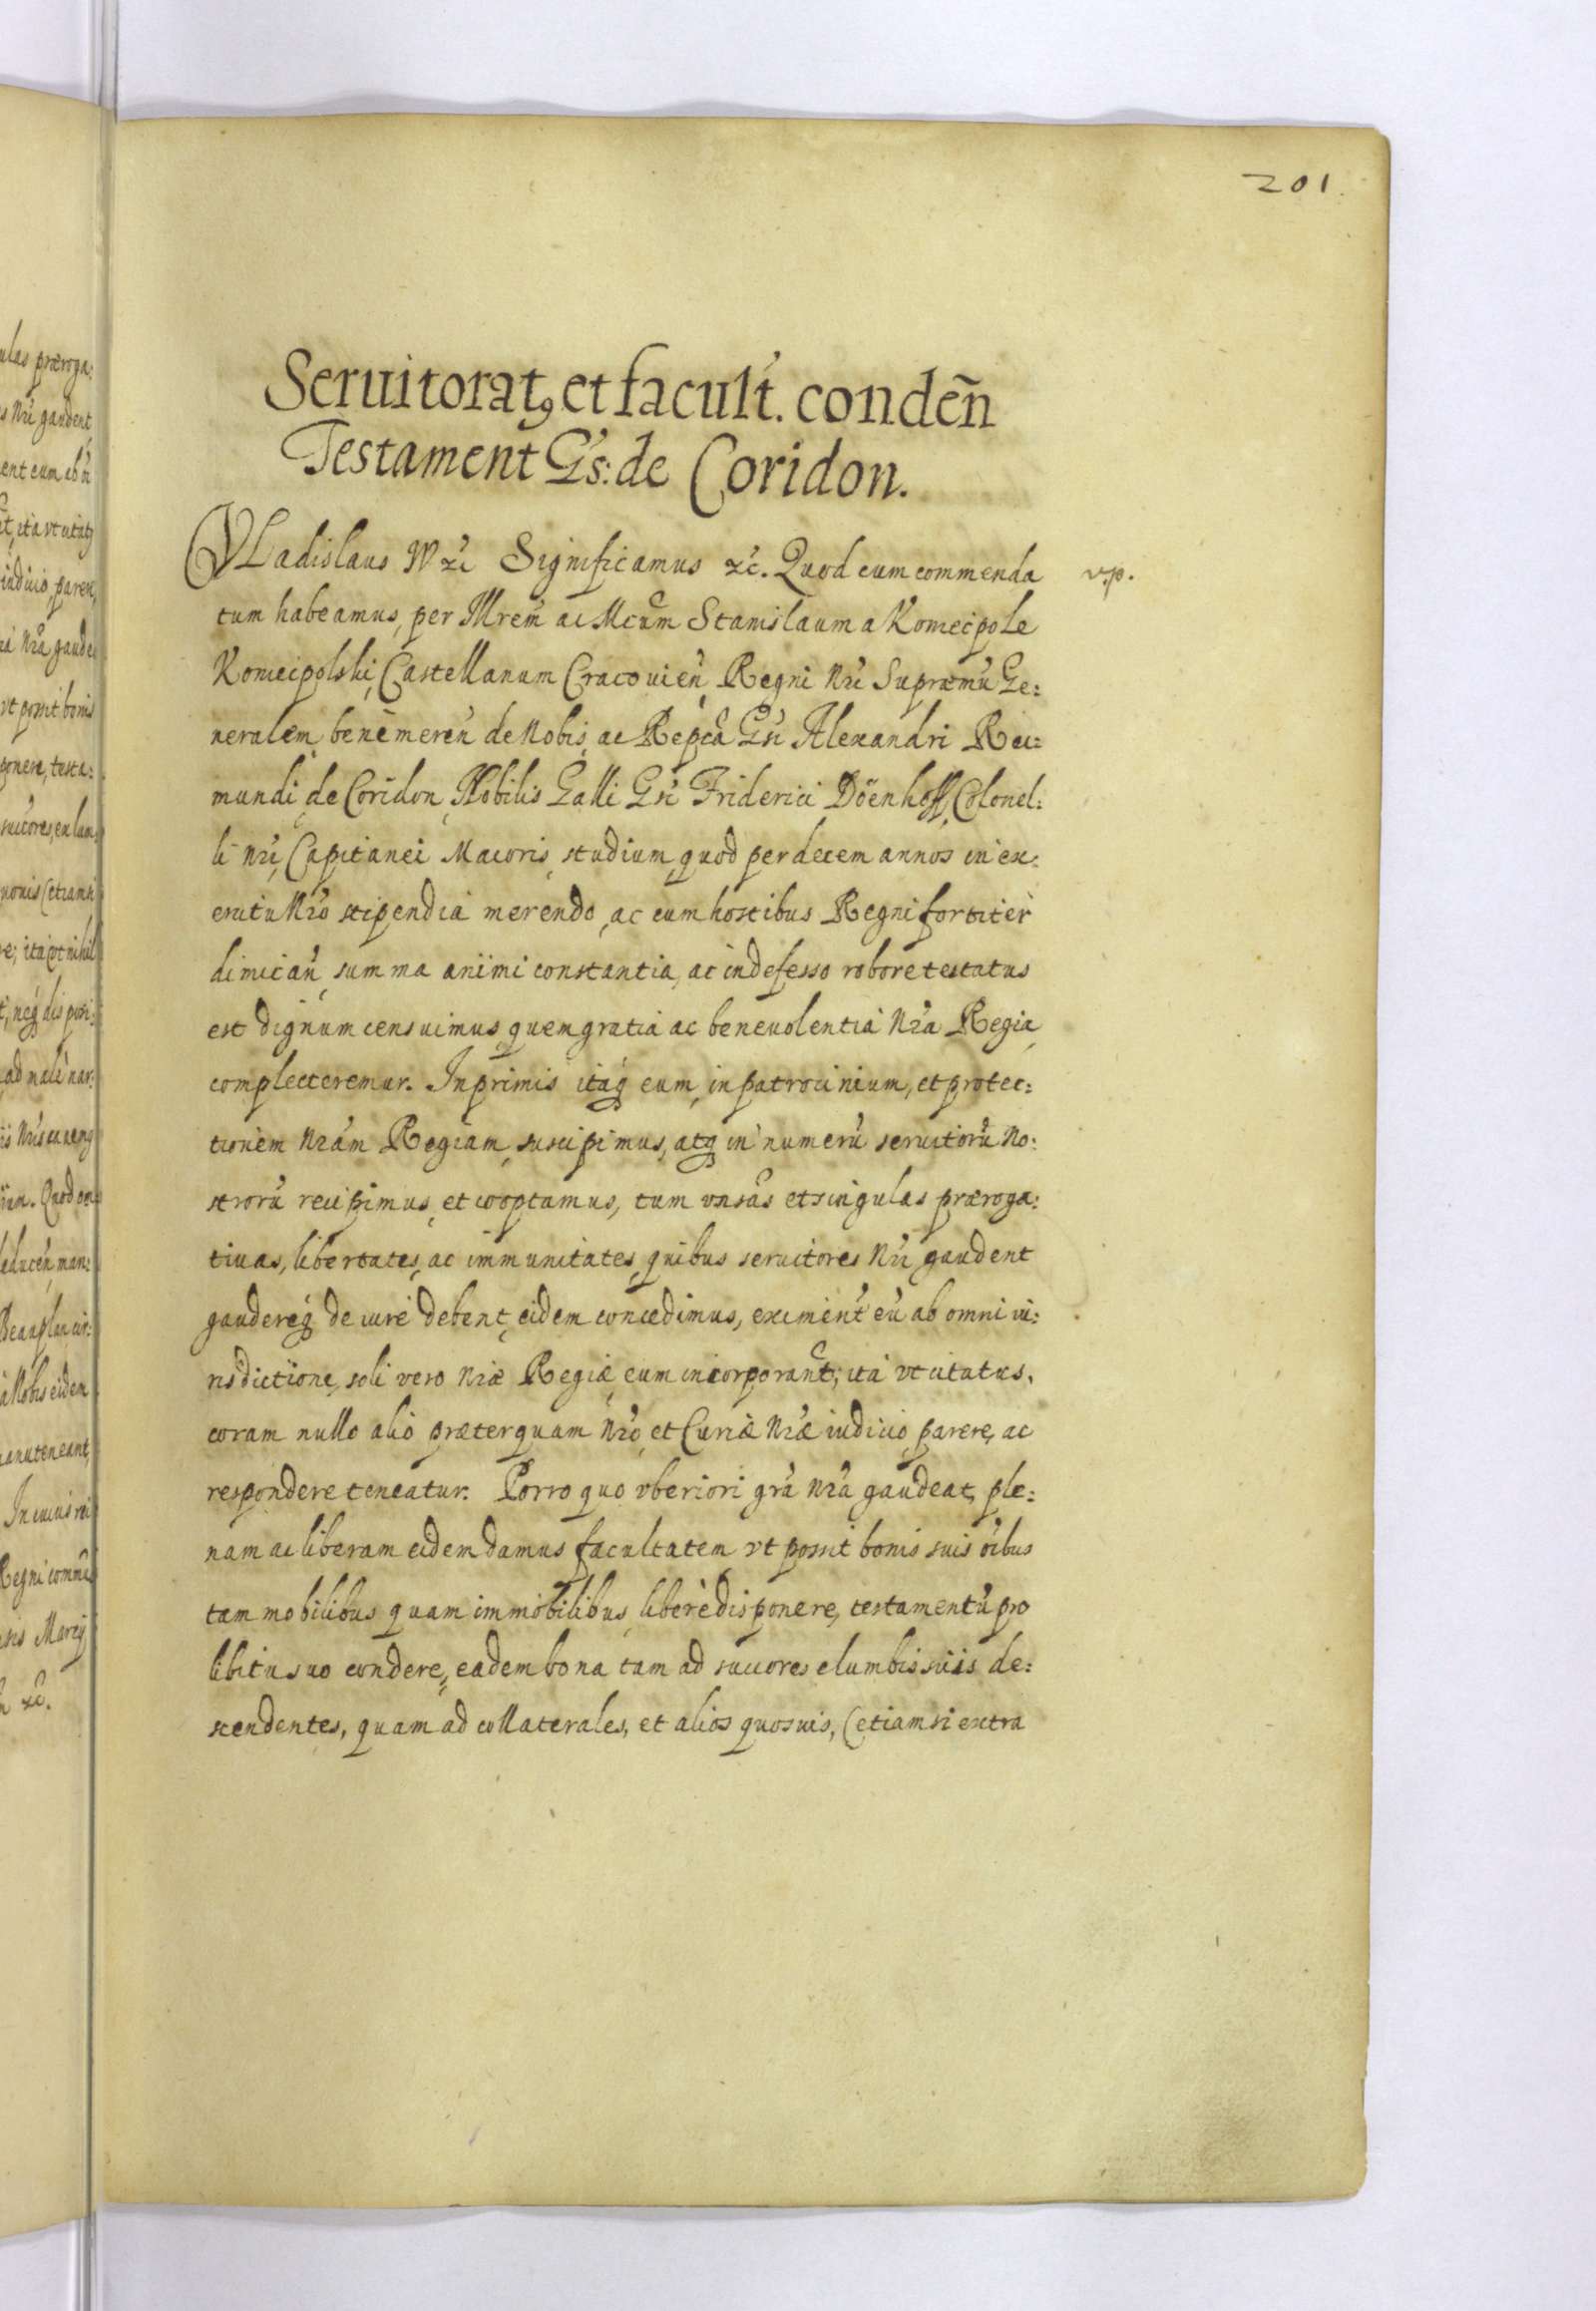 201.
Seruitorat9 et facult. condeñ
Testament Gs: de Coridon.
VLadislaus IV &c Significamus &c. Quod cum commenda v.p.
tum habeamus, per Illrem ac Mcum Stanislaum a Koniecpole
Koniecpolski, Castellanum Cracouien, Regni Nri Supræmũ Ge:
neralem, benè meren de Nobis, ac Repca Gsi Alexandri Rei:
mundi de Coridon, Nobilis Galli Gsi Friderici Döenhoff, Colonel:
li Nri, Capitanei Maioris, studium, quod per decem annos in ex:
ercitu Nro stipendia merendo, ac cum hostibus Regni fortiter
dimican, summa animi constantia, ac indefesso robore testatus
est dignum censuimus, quem gratia ac beneuolentia Nra Regia,
complecteremur. Inprimis itaq eum, in patrocinium, et protec:
tionem Nram Regiam, suscipimus, atq in numerũ seruitorũ No:
strorũ recipimus, et cooptamus, tum vnsas et singulas præroga:
tiuas, libertates, ac immunitates, quibus seruitores Nri gaudent
gaudereq de iure debent, eidem concedimus, eximent eũ ab omni iu:
risdictione, soli vero Nræ Regiæ, eum incorporant; ita vt citatus,
coram nullo alio præterquam Nro, et Curiæ Nræ iudicio, parere, ac
respondere teneatur. Porro quo vberiori gra Nra gaudeat, ple:
nam ac liberam eidem damus facultatem vt possit bonis suis oibus
tam mobilibus quam immobilibus, liberè disponere, testamentũ pro
libitu suo condere, eadem bona tam ad succores e lumbis suis de:
scendentes, quam ad collaterales, et alios quosuis, (etiamsi extra